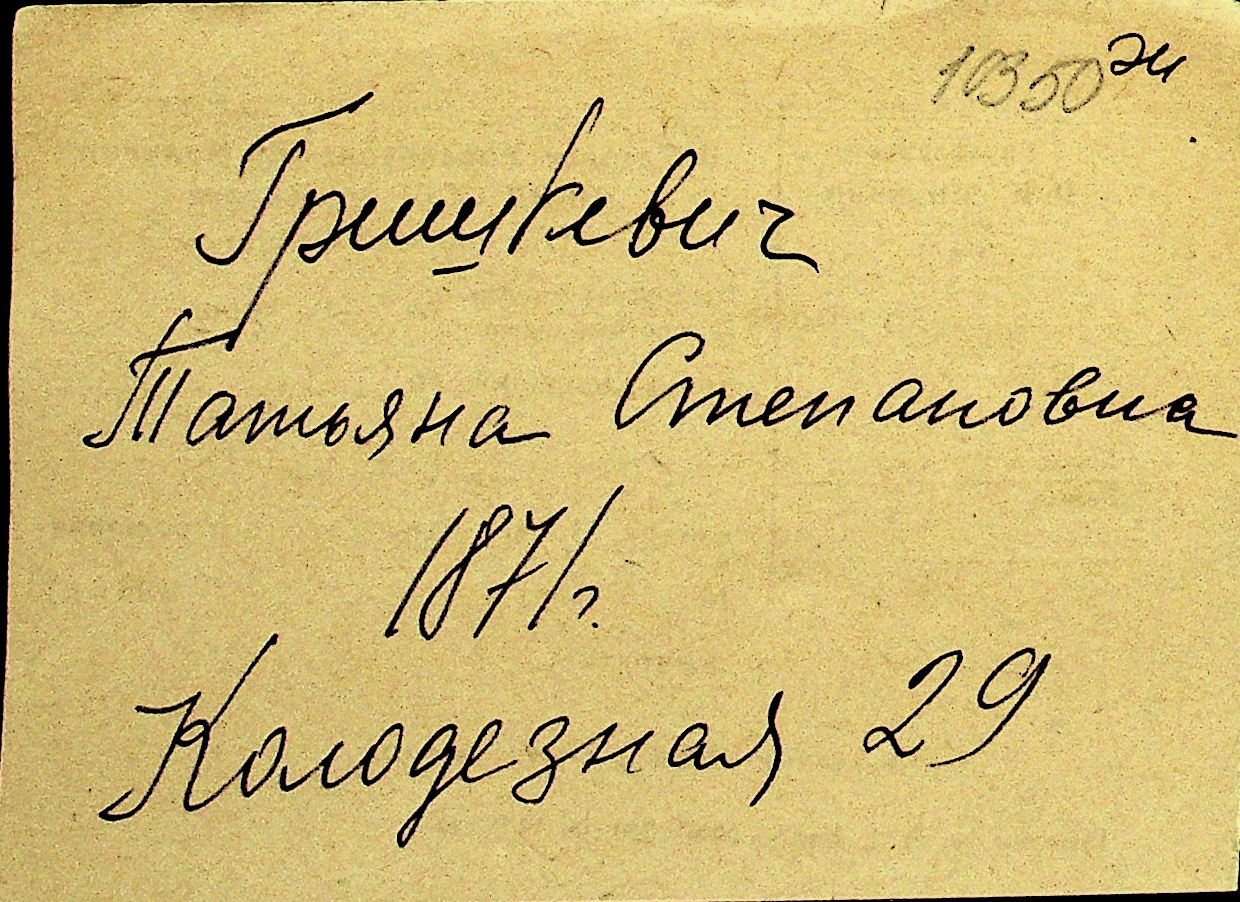 10350 эи
Гришкевич
Татьяна Степановна
1871г.
Колодезная 29